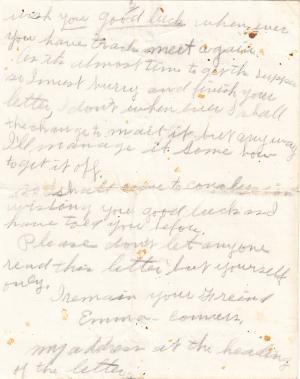 wish you good luck whenever
you have track meet again.
as its almost time to get supper
so I must hurry and finish your
letter, I don't when ever I shall
the change to mail it, but any way
I'll manage it some how
to get it off.
so shall come to conclusion
wishing you good luck as I
have told you before.
Please don't let anyone
read this letter but yourself
only.
I remain your Freind
Emma
my address at the heading
of the letter.